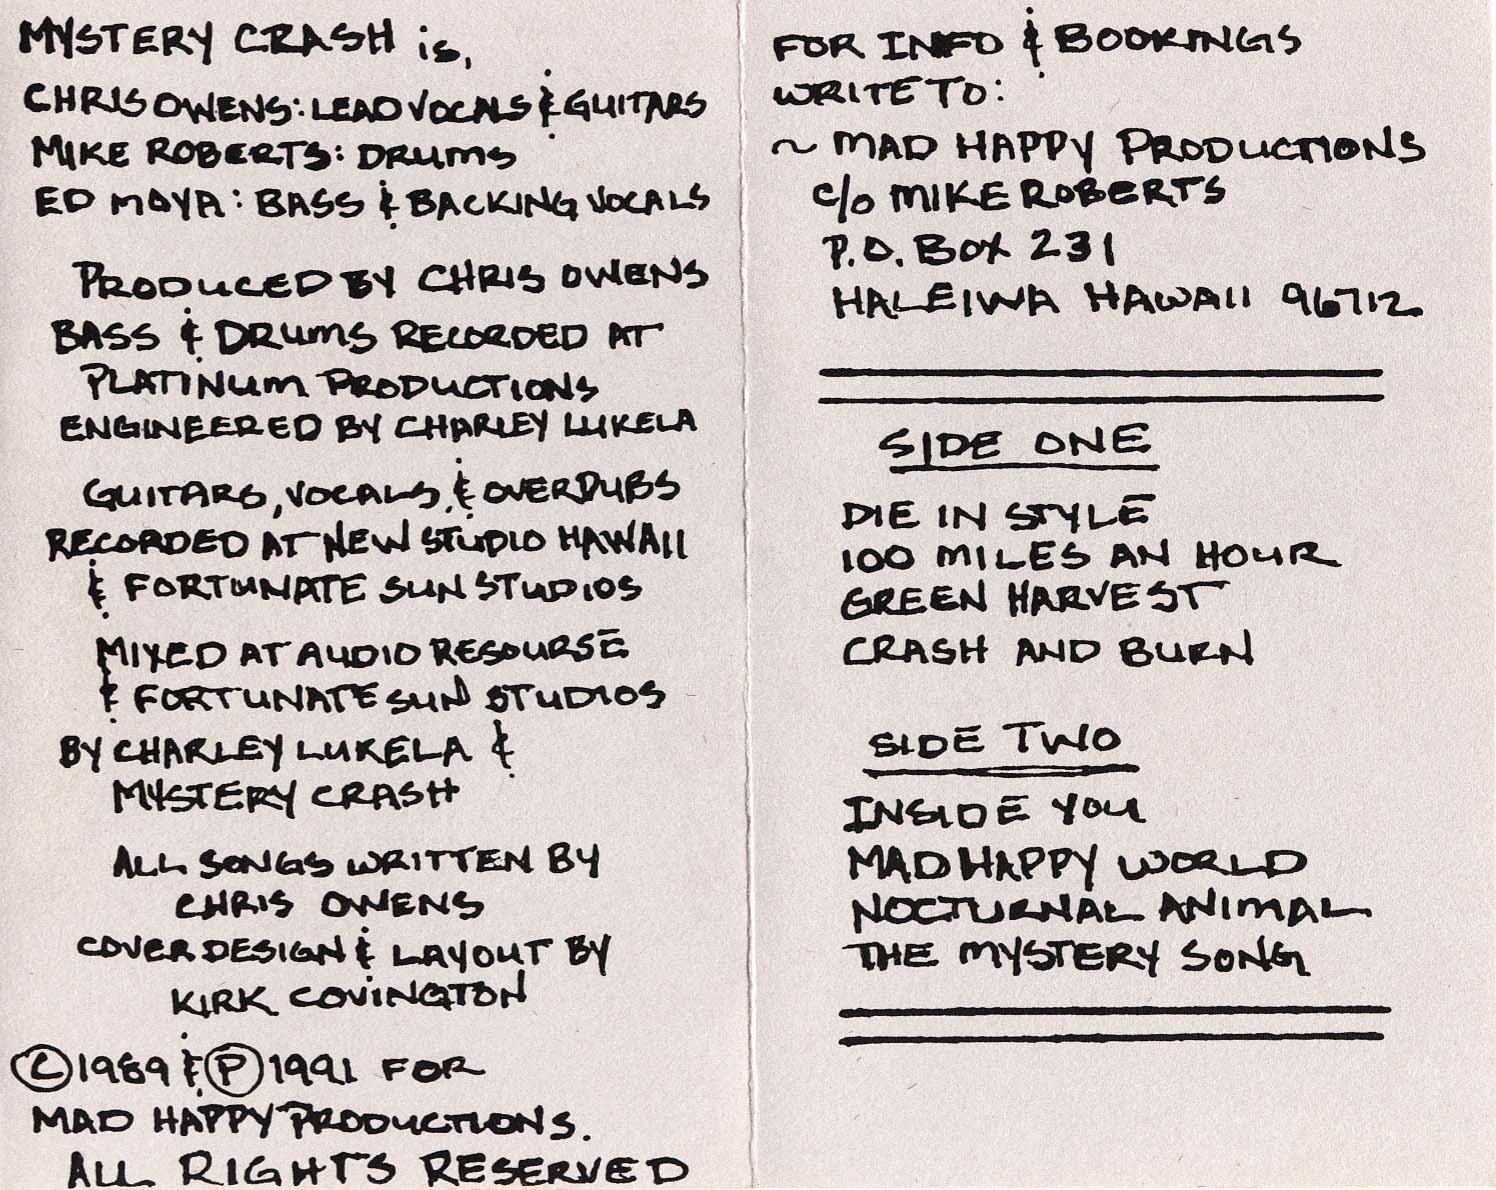 MYSTERY CRASH is,
CHRIS OWENS: LEAD VOCALS & GUITARS
MIKE ROBERTS: DRUMS
ED MOYA: BASS & BACKING VOCALS
PRODUCED BY CHRIS OWENS
BASS & DRUMS RECORDED AT
PLATINUM PRODUCTIONS
ENGINEERED BY CHARLEY LUKELA
GUITARS, VOCALS, & OVERDUBS
RECORDED AT NEW STUDIO HAWAII
& FORTUNATE SUN STUDIOS
MIXED AT AUDIO RESOURSE
& FORTUNATE SUN STUDIOS
BY CHARLEY LUKELA &
MYSTERY CRASH
ALL SONGS WRITTEN BY
CHRIS OWENS
COVER DESIGN & LAYOUT BY
KIRK COVINGTON
©1989 & ℗1991 FOR
MAD HAPPY PRODUCTIONS.
ALL RIGHTS RESERVED
FOR INFO & BOOKINGS
WRITE TO:
~ MAD HAPPY PRODUCTIONS
c/o MIKE ROBERTS
P.O. BOX 231
HALEIWA HAWAII 96712
SIDE ONE
DIE IN STYLE
100 MILES AN HOUR
GREEN HARVEST
CRASH AND BURN
SIDE TWO
INSIDE YOU
MAD HAPPY WORLD
NOCTURNAL ANIMAL
THE MYSTERY SONG